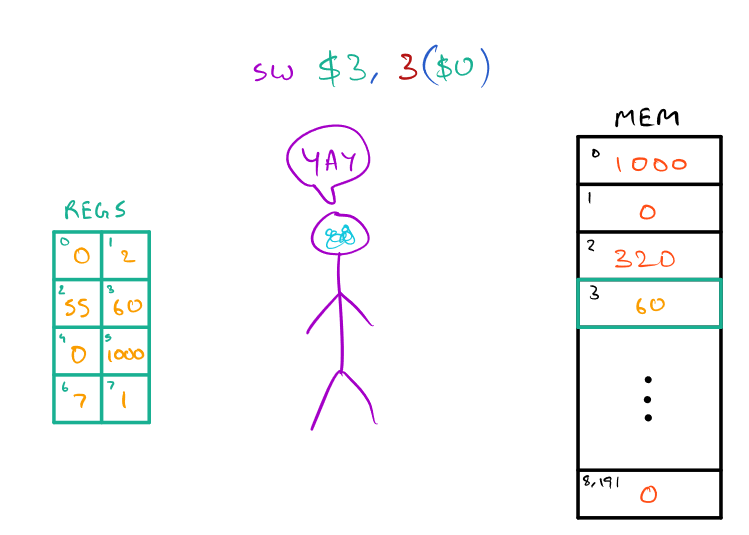 sw $3, 3($0)
MEM
YAY
REGS
0 0 1 2
2 55 3 60
4 0 5 1000
6 7 7 1
0 1000
1 0
2 320
3 60
8,191 0